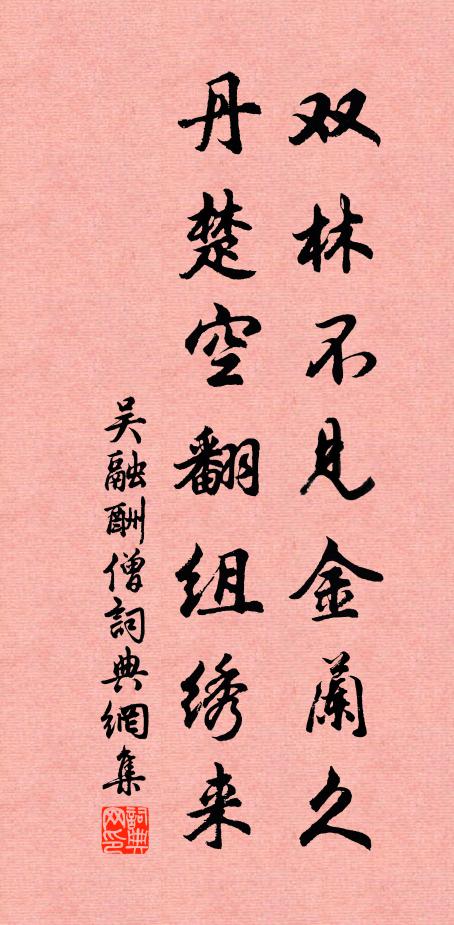 双林不见金兰久
丹楚空翻组绣来
吴融酬僧詞典網集
詞典网印